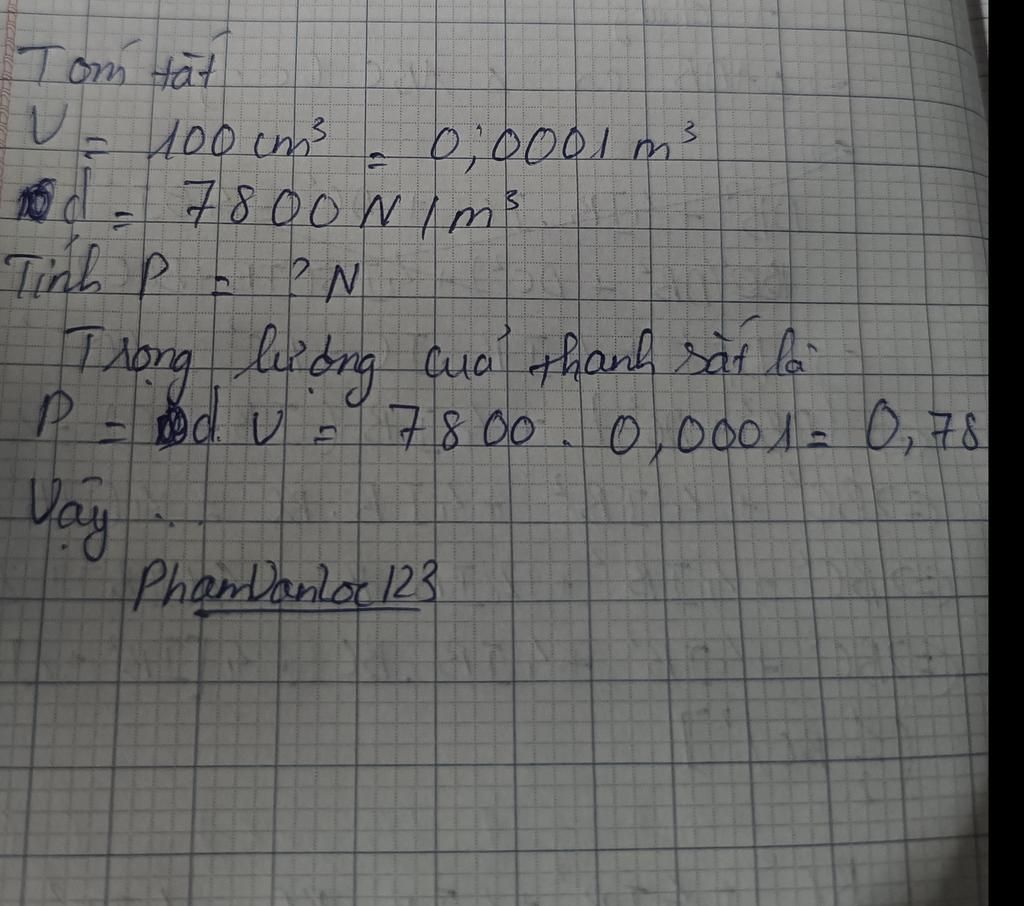 Tóm tắt
V = 100 cm³ = 0,0001 m³
d = 7800 N/m³
Tính P = ? N
Trọng lượng của thanh sắt là
P = d. V = 7800 . 0,0001 = 0,78
Vậy ...
PhamVanLoc123